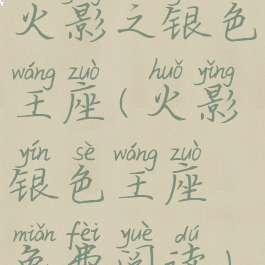 火影之银色
wáng zuò huǒ yǐng
王座(火影
yín sè wáng zuò
银色王座
miǎn fèi yuè dú
免费阅读)